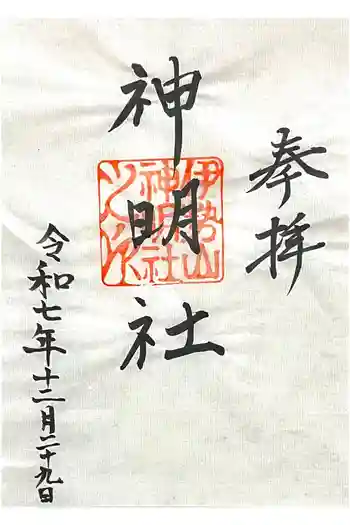 奉拝
神明社
伊勢山
神明社
令和七年十二月二十九日